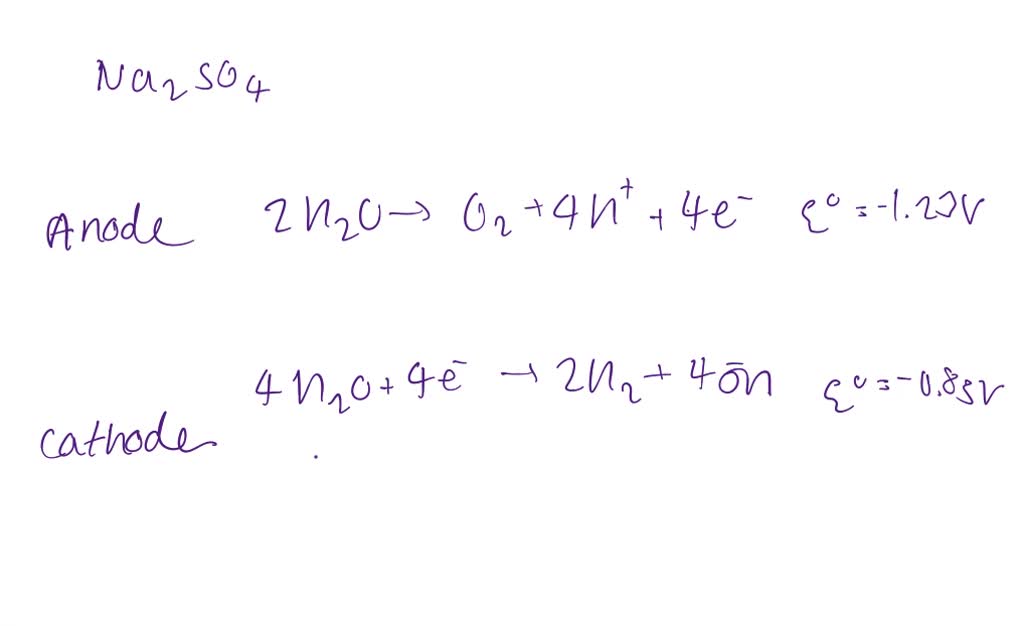 Na₂SO₄
Anode 2H₂O → O₂ + 4H⁺ + 4e⁻ ε° = -1.23V
4H₂O + 4e⁻ → 2H₂ + 4OH⁻ ε° = -0.83V
Cathode